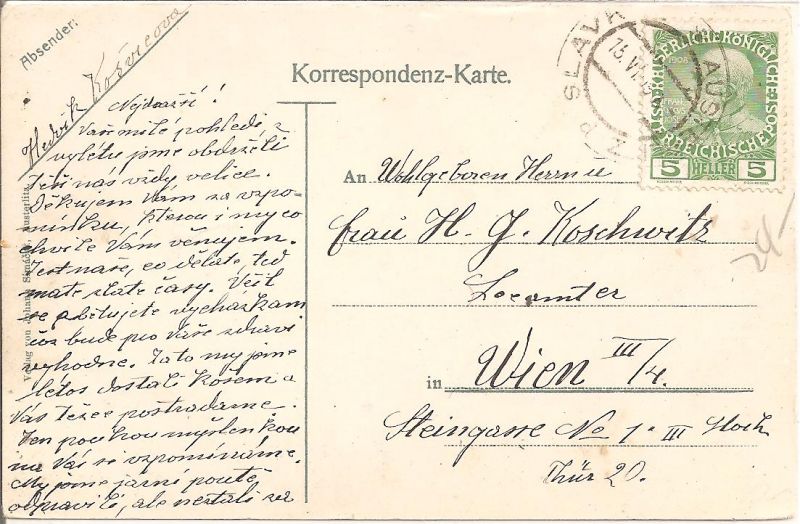 Absender:
Hedvik Košvicova
Korrespondenz-Karte.
Nejdražší!
Vaše milé pohledy z
výletu jsme obdrželi
Těší nás vždy velice.
Děkujem Vám za vzpo-
mínku, kterou i my co
chvíle Vám věnujem.
co děláte, teď
máte zlaté časy.
vycházkam
což bude pro Vaše zdraví
výhodne. Tato my jsme
létos dostali košem a
Vás težce postradame.
Jen pouhou myšlenkou
na Vás si vzpomínáme.
My jsme jarní poutě
odpravili, ale nestáli za
Verlag von Johann Austerlitz
SLAVK
AUST
15.VI
1908
KAISERLICHE KÖNIGLICHE
ÖSTERREICHISCHE POST
5 HELLER 5
An Wohlgeboren Herrn u
frau H. J. Koschwitz
in Wien III/4.
Steingasse No 1. III Stock
Thür 20.